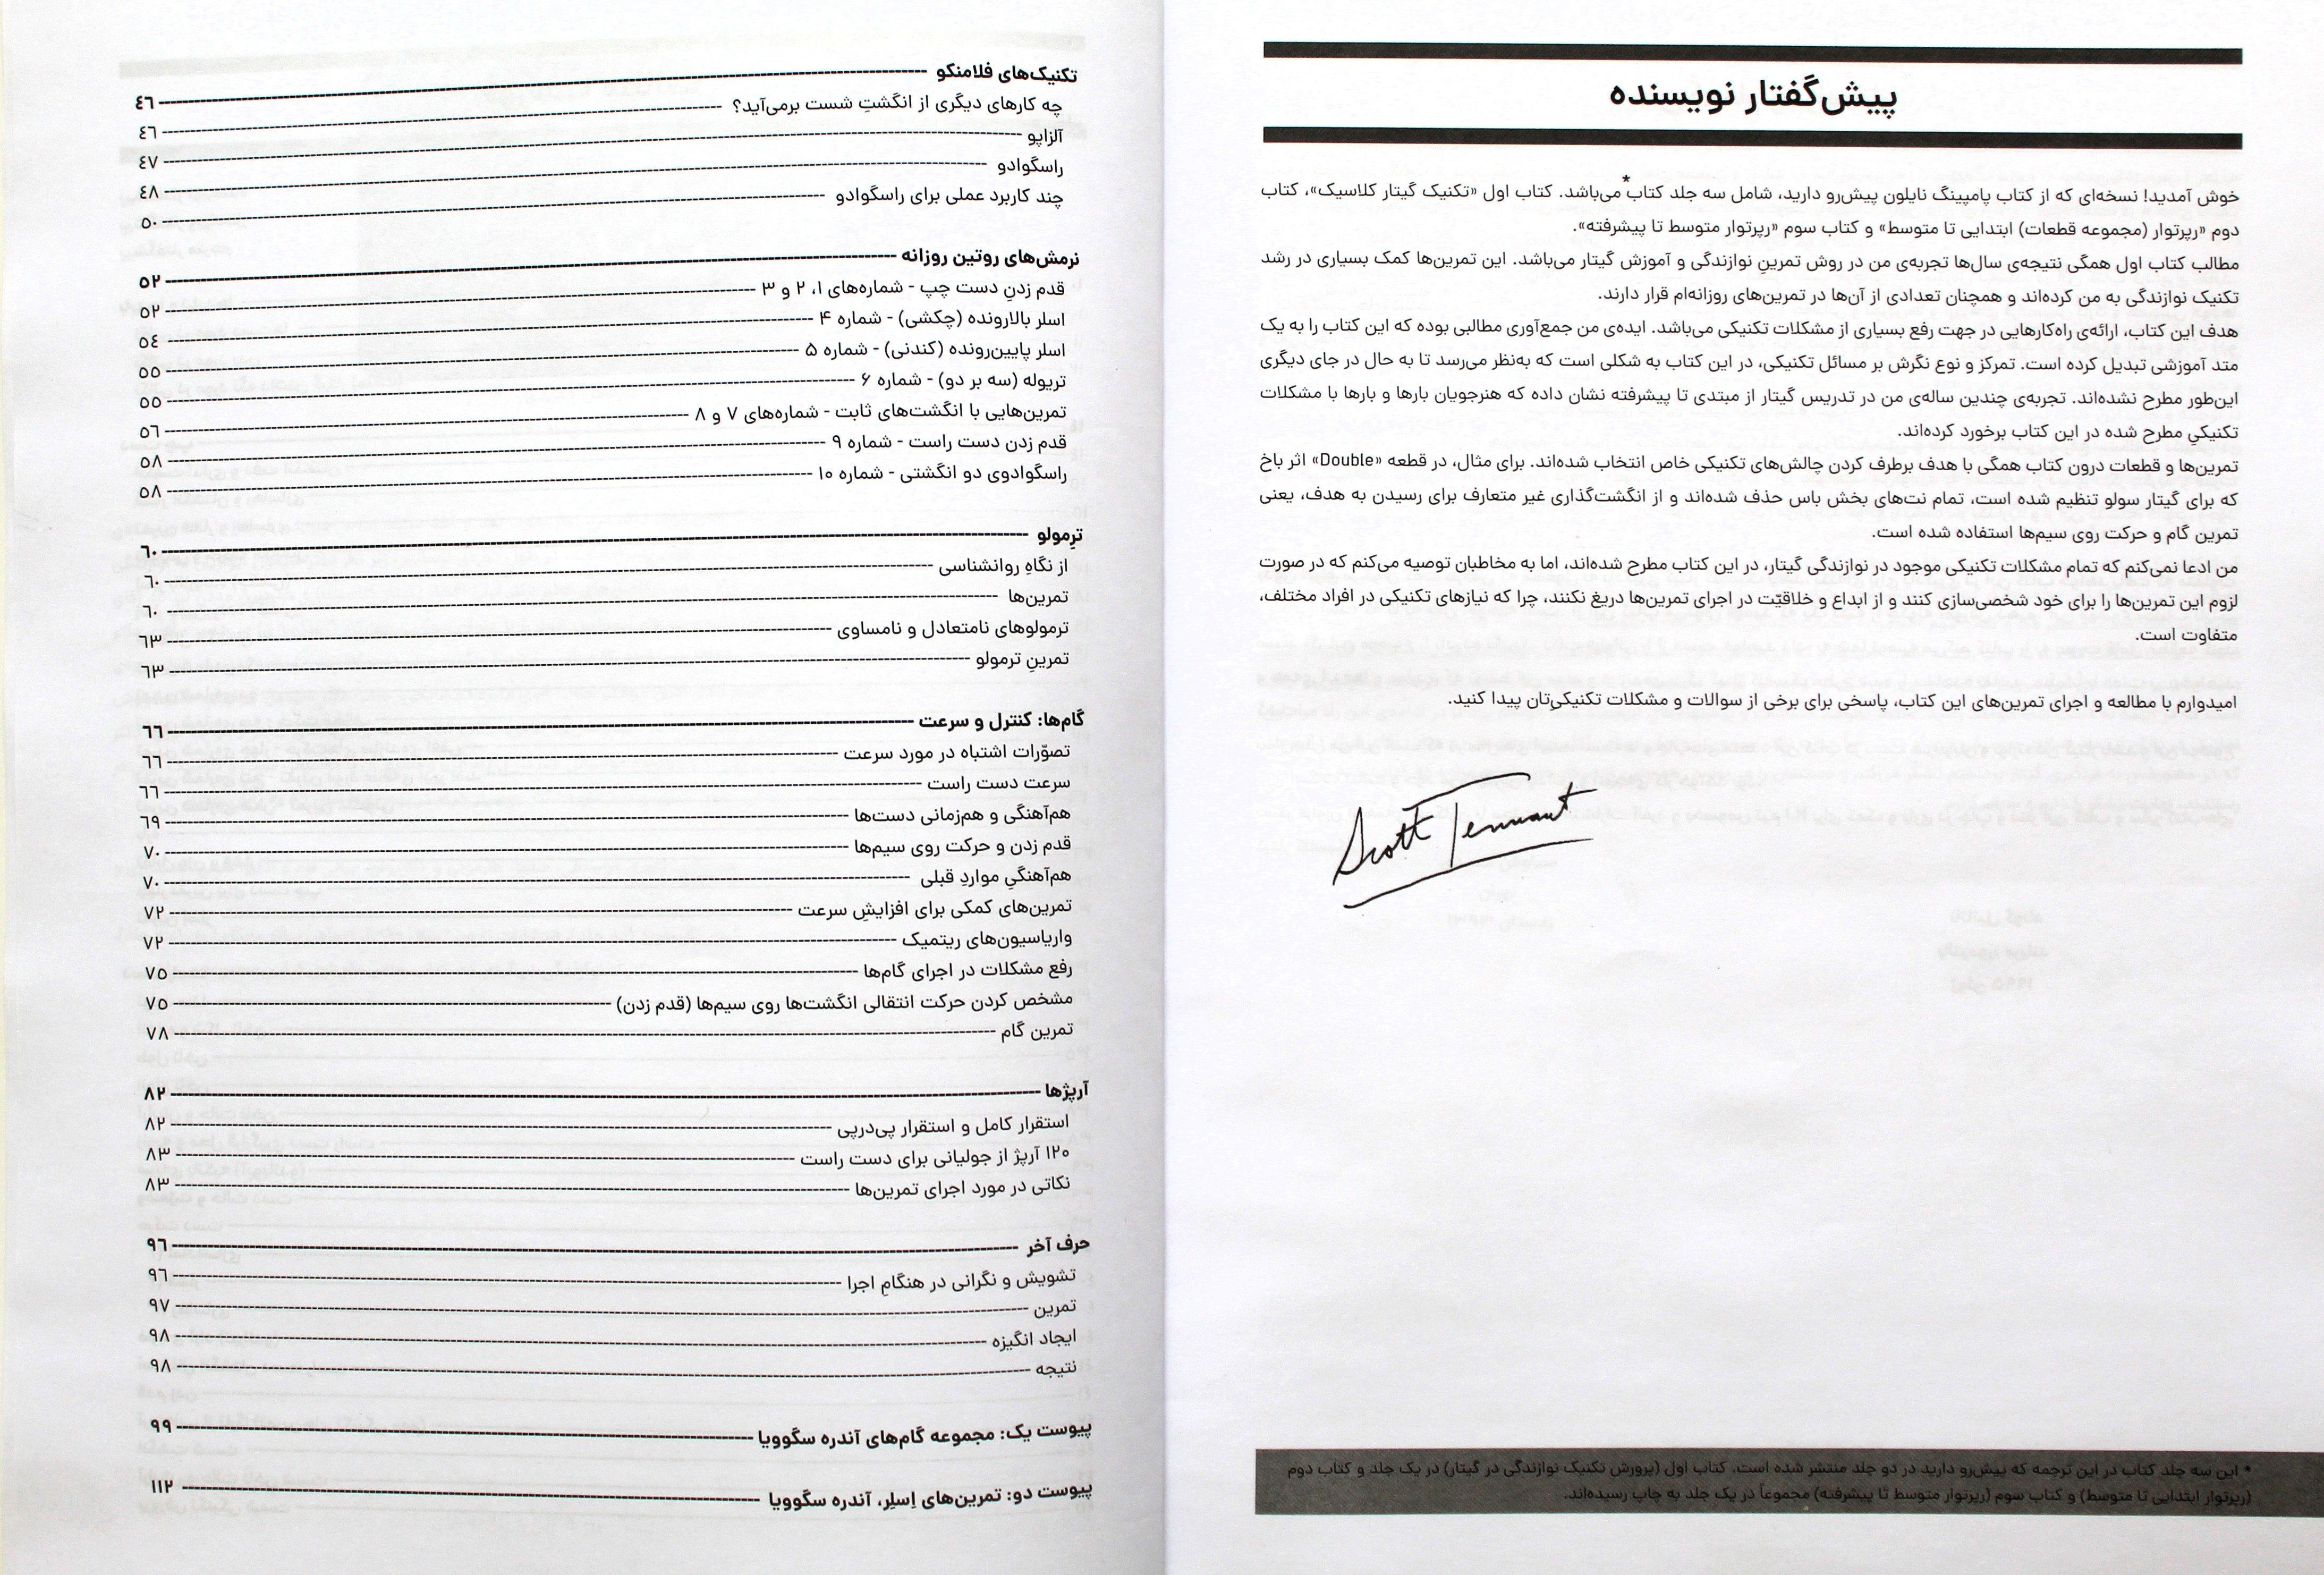 پیش‌گفتار نویسنده
خوش آمدید! نسخه‌ای که از کتاب پامپینگ نایلون پیش‌رو دارید، شامل سه جلد کتاب* می‌باشد. کتاب اول «تکنیک گیتار کلاسیک»، کتاب
دوم «رپرتوار (مجموعه قطعات) ابتدایی تا متوسط» و کتاب سوم «رپرتوار متوسط تا پیشرفته».
مطالب کتاب اول همگی نتیجه‌ی سال‌ها تجربه‌ی من در روش تمرینِ نوازندگی و آموزش گیتار می‌باشد. این تمرین‌ها کمک بسیاری در رشد
تکنیک نوازندگی به من کرده‌اند و همچنان تعدادی از آن‌ها در تمرین‌های روزانه‌ام قرار دارند.
هدف این کتاب، ارائه‌ی راه‌کارهایی در جهت رفع بسیاری از مشکلات تکنیکی می‌باشد. ایده‌ی من جمع‌آوری مطالبی بوده که این کتاب را به یک
متد آموزشی تبدیل کرده است. تمرکز و نوع نگرش بر مسائل تکنیکی، در این کتاب به شکلی است که به‌نظر می‌رسد تا به حال در جای دیگری
این‌طور مطرح نشده‌اند. تجربه‌ی چندین ساله‌ی من در تدریس گیتار از مبتدی تا پیشرفته نشان داده که هنرجویان بارها و بارها با مشکلات
تکنیکیِ مطرح شده در این کتاب برخورد کرده‌اند.
تمرین‌ها و قطعات درون کتاب همگی با هدف برطرف کردن چالش‌های تکنیکی خاص انتخاب شده‌اند. برای مثال، در قطعه «Double» اثر باخ
که برای گیتار سولو تنظیم شده است، تمام نت‌های بخش باس حذف شده‌اند و از انگشت‌گذاری غیر متعارف برای رسیدن به هدف، یعنی
تمرین گام و حرکت روی سیم‌ها استفاده شده است.
من ادعا نمی‌کنم که تمام مشکلات تکنیکی موجود در نوازندگی گیتار، در این کتاب مطرح شده‌اند، اما به مخاطبان توصیه می‌کنم که در صورت
لزوم این تمرین‌ها را برای خود شخصی‌سازی کنند و از ابداع و خلاقیّت در اجرای تمرین‌ها دریغ نکنند، چرا که نیازهای تکنیکی در افراد مختلف،
متفاوت است.
امیدوارم با مطالعه و اجرای تمرین‌های این کتاب، پاسخی برای برخی از سوالات و مشکلات تکنیکی‌تان پیدا کنید.
Scott Tennant
* این سه جلد کتاب در این ترجمه که پیش‌رو دارید در دو جلد منتشر شده است. کتاب اول (پرورش تکنیک نوازندگی در گیتار) در یک جلد و کتاب دوم
(رپرتوار ابتدایی تا متوسط) و کتاب سوم (رپرتوار متوسط تا پیشرفته) مجموعاً در یک جلد به چاپ رسیده‌اند.
تکنیک‌های فلامنکو ٤٦
چه کارهای دیگری از انگشتِ شست برمی‌آید؟ ٤٦
آلزاپو ٤٧
راسگوادو ٤٨
چند کاربرد عملی برای راسگوادو ٥٠
نرمش‌های روتین روزانه ٥٢
قدم زدنِ دست چپ - شماره‌های ۱، ۲ و ۳ ٥٢
اسلر بالارونده (چکشی) - شماره ۴ ٥٤
اسلر پایین‌رونده (کندنی) - شماره ۵ ٥٥
تریوله (سه بر دو) - شماره ۶ ٥٥
تمرین‌هایی با انگشت‌های ثابت - شماره‌های ۷ و ۸ ٥٦
قدم زدن دست راست - شماره ۹ ٥٨
راسگوادوی دو انگشتی - شماره ۱۰ ٥٨
ترِمولو ٦٠
از نگاهِ روانشناسی ٦٠
تمرین‌ها ٦٠
ترمولوهای نامتعادل و نامساوی ٦٣
تمرینِ ترمولو ٦٣
گام‌ها: کنترل و سرعت ٦٦
تصوّرات اشتباه در مورد سرعت ٦٦
سرعت دست راست ٦٦
هم‌آهنگی و هم‌زمانی دست‌ها ٦٩
قدم زدن و حرکت روی سیم‌ها ٧٠
هم‌آهنگیِ مواردِ قبلی ٧٠
تمرین‌های کمکی برای افزایشِ سرعت ٧٢
واریاسیون‌های ریتمیک ٧٢
رفع مشکلات در اجرای گام‌ها ٧٥
مشخص کردن حرکت انتقالی انگشت‌ها روی سیم‌ها (قدم زدن) ٧٥
تمرین گام ٧٨
آرپژها ٨٢
استقرار کامل و استقرار پی‌درپی ٨٢
۱۲۰ آرپژ از جولیانی برای دست راست ٨٣
نکاتی در مورد اجرای تمرین‌ها ٨٣
حرف آخر ٩٦
تشویش و نگرانی در هنگامِ اجرا ٩٦
تمرین ٩٧
ایجاد انگیزه ٩٨
نتیجه ٩٨
پیوست یک: مجموعه گام‌های آندره سگوویا ٩٩
پیوست دو: تمرین‌های اِسلِر، آندره سگوویا ١١٢